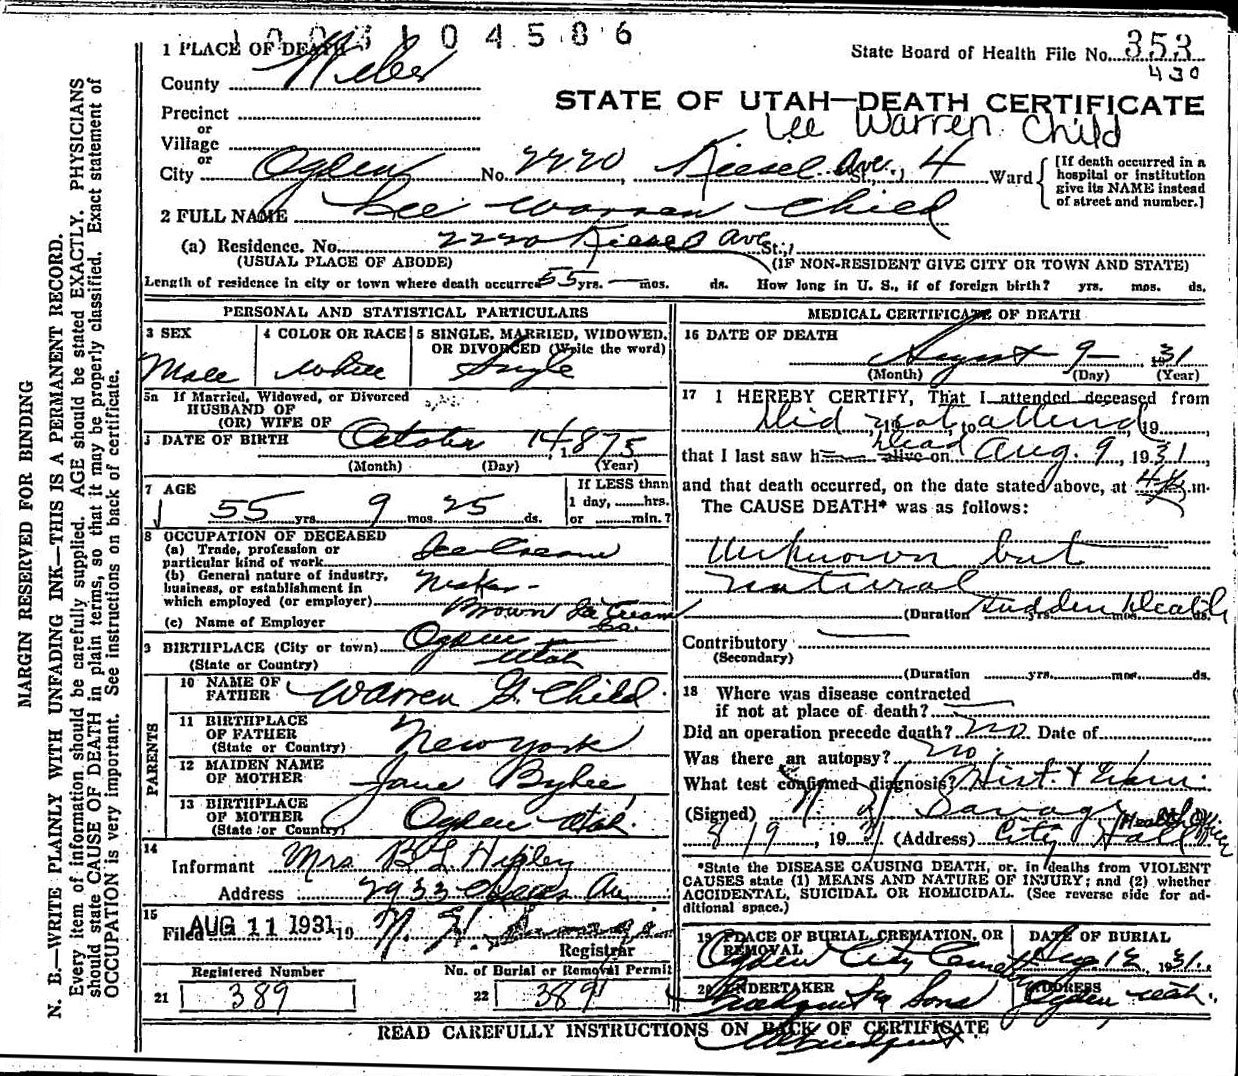 1003104586
1 PLACE OF DEATH
State Board of Health File No. 353
430
County Weber
STATE OF UTAH—DEATH CERTIFICATE
Lee Warren Child
Precinct
or
Village
or
City Ogden No. 2220, Kiesel Ave. St., 4 Ward
[If death occurred in a
hospital or institution
give its NAME instead
of street and number.]
2 FULL NAME Lee Warren Child
(a) Residence. No. 2220 Kiesel Ave St.,
(USUAL PLACE OF ABODE) (IF NON-RESIDENT GIVE CITY OR TOWN AND STATE)
Length of residence in city or town where death occurred 55 yrs. — mos. ds. How long in U. S., if of foreign birth? yrs. mos. ds.
PERSONAL AND STATISTICAL PARTICULARS
3 SEX
Male
4 COLOR OR RACE
White
5 SINGLE, MARRIED, WIDOWED,
OR DIVORCED (Write the word)
Single
5a If Married, Widowed, or Divorced
HUSBAND OF
(OR) WIFE OF
DATE OF BIRTH October 14, 1875
(Month) (Day) (Year)
7 AGE
55 yrs. 9 mos. 25 ds.
If LESS than
1 day, ......hrs.
or ......min.?
8 OCCUPATION OF DECEASED
(a) Trade, profession or
particular kind of work Ice Cream
(b) General nature of industry,
business, or establishment in
which employed (or employer)
Brown Ice Cream
(c) Name of Employer Co.
9 BIRTHPLACE (City or town) Ogden
(State or Country) Utah
PARENTS
10 NAME OF
FATHER Warren G. Child
11 BIRTHPLACE
OF FATHER
(State or Country) New York
12 MAIDEN NAME
OF MOTHER Jane Bybee
13 BIRTHPLACE
OF MOTHER
(State or Country) Ogden Utah
14
Informant Mrs. B. L.
Address 2933 Ave
15
Filed AUG 11 1931 19
Registrar
Registered Number
21 389
No. of Burial or Removal Permit
22 389
MEDICAL CERTIFICATE OF DEATH
16 DATE OF DEATH
August 9 — 1931
(Month) (Day) (Year)
17 I HEREBY CERTIFY, That I attended deceased from
Did not to attend, 19
that I last saw h alive on dead Aug. 9, 1931,
and that death occurred, on the date stated above, at m.
The CAUSE DEATH* was as follows:
Unknown but
natural
(Duration yrs. mos. ds. Sudden Death
Contributory —
(Secondary)
(Duration yrs. mos. ds.
18 Where was disease contracted
if not at place of death? —
Did an operation precede death? no. Date of
Was there an autopsy? no.
What test confirmed diagnosis? Hist. & Exam.
(Signed) Savage Health Officer
8/9, 1931 (Address) City Hall
*State the DISEASE CAUSING DEATH, or, in deaths from VIOLENT
CAUSES state (1) MEANS AND NATURE OF INJURY; and (2) whether
ACCIDENTAL, SUICIDAL OR HOMICIDAL. (See reverse side for ad-
ditional space.)
19 PLACE OF BURIAL, CREMATION, OR
REMOVAL
Ogden City Cemetery
DATE OF BURIAL
Aug. 12, 1931.
20 UNDERTAKER
& Sons
ADDRESS
Ogden Utah.
READ CAREFULLY INSTRUCTIONS ON BACK OF CERTIFICATE
MARGIN RESERVED FOR BINDING
N. B.—WRITE PLAINLY WITH UNFADING INK—THIS IS A PERMANENT RECORD.
Every item of information should be carefully supplied. AGE should be stated EXACTLY. PHYSICIANS
should state CAUSE OF DEATH in plain terms, so that it may be properly classified. Exact statement of
OCCUPATION is very important. See instructions on back of certificate.